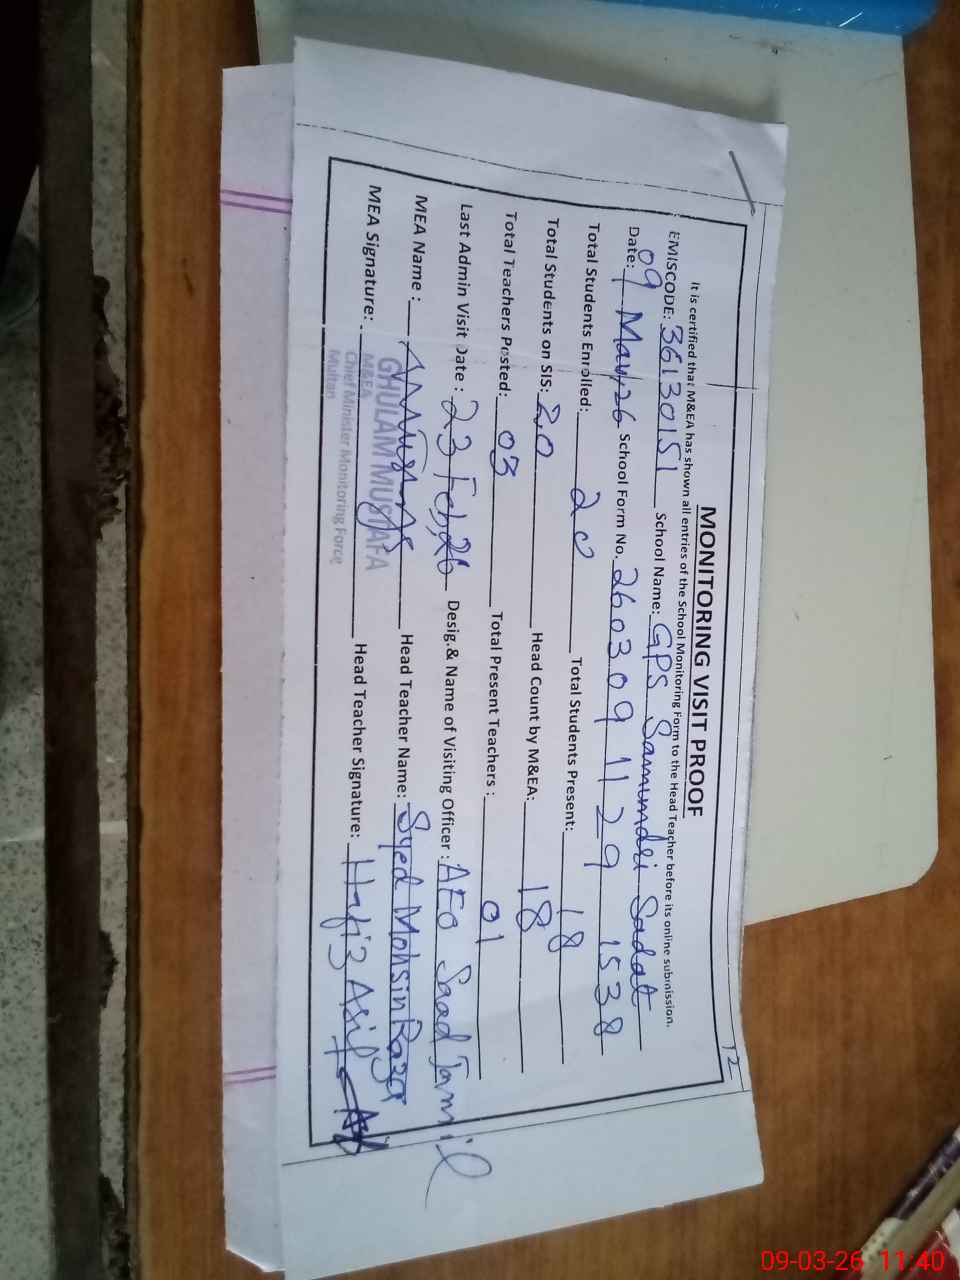 12
MONITORING VISIT PROOF
It is certified that M&EA has shown all entries of the School Monitoring Form to the Head Teacher before its online submission.
EMISCODE: 36130151 School Name: GPS Samundri Sadat
Date: 09 Mar,26 School Form No. 260309 1129 1538
Total Students Enrolled: 20 Total Students Present: 18
Total Students on SIS: 20 Head Count by M&EA: 18
Total Teachers Posted: 03 Total Present Teachers: 01
Last Admin Visit Date: 23 Feb,26 Desig.& Name of Visiting Officer: AEO Saad Jamil
MEA Name: Head Teacher Name: Syed Mohsin Raza
MEA Signature: Head Teacher Signature: Hafiz Asif
GHULAM MUSTAFA
M&EA
Chief Minister Monitoring Force
Multan
09-03-26 11:40